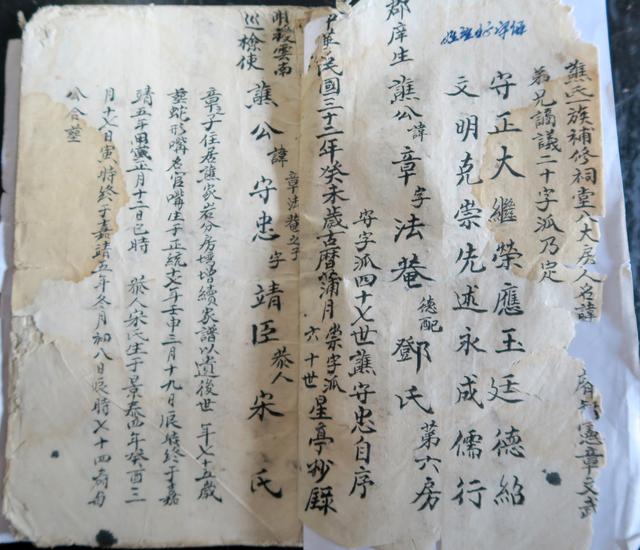 譙氏一族補修祠堂八大房人名諱 憲章文武
弟兄謫議二十字派乃定
守正大繼榮應玉廷德紹
文明克崇先述永成儒行
郡庠生譙公諱章字法菴德配鄧氏第六房
字派四十七世譙守忠自序
民國三十二年癸未歲古曆蒲月崇字派六十世星亭抄錄
明敕雲南
巡檢使
章法菴之子
譙公諱守忠字靖臣恭人宋氏
章子住居譙家岩分房增續家譜以遺後世年七十五歲
蛇形嘴老官嘴生于正統十七年壬申三月十九日辰時終于嘉
靖五年正月十二日巳時恭人宋氏生于景泰四年癸酉三
月十六日寅時終于嘉靖五年冬月初八日辰時七十四
公合塋